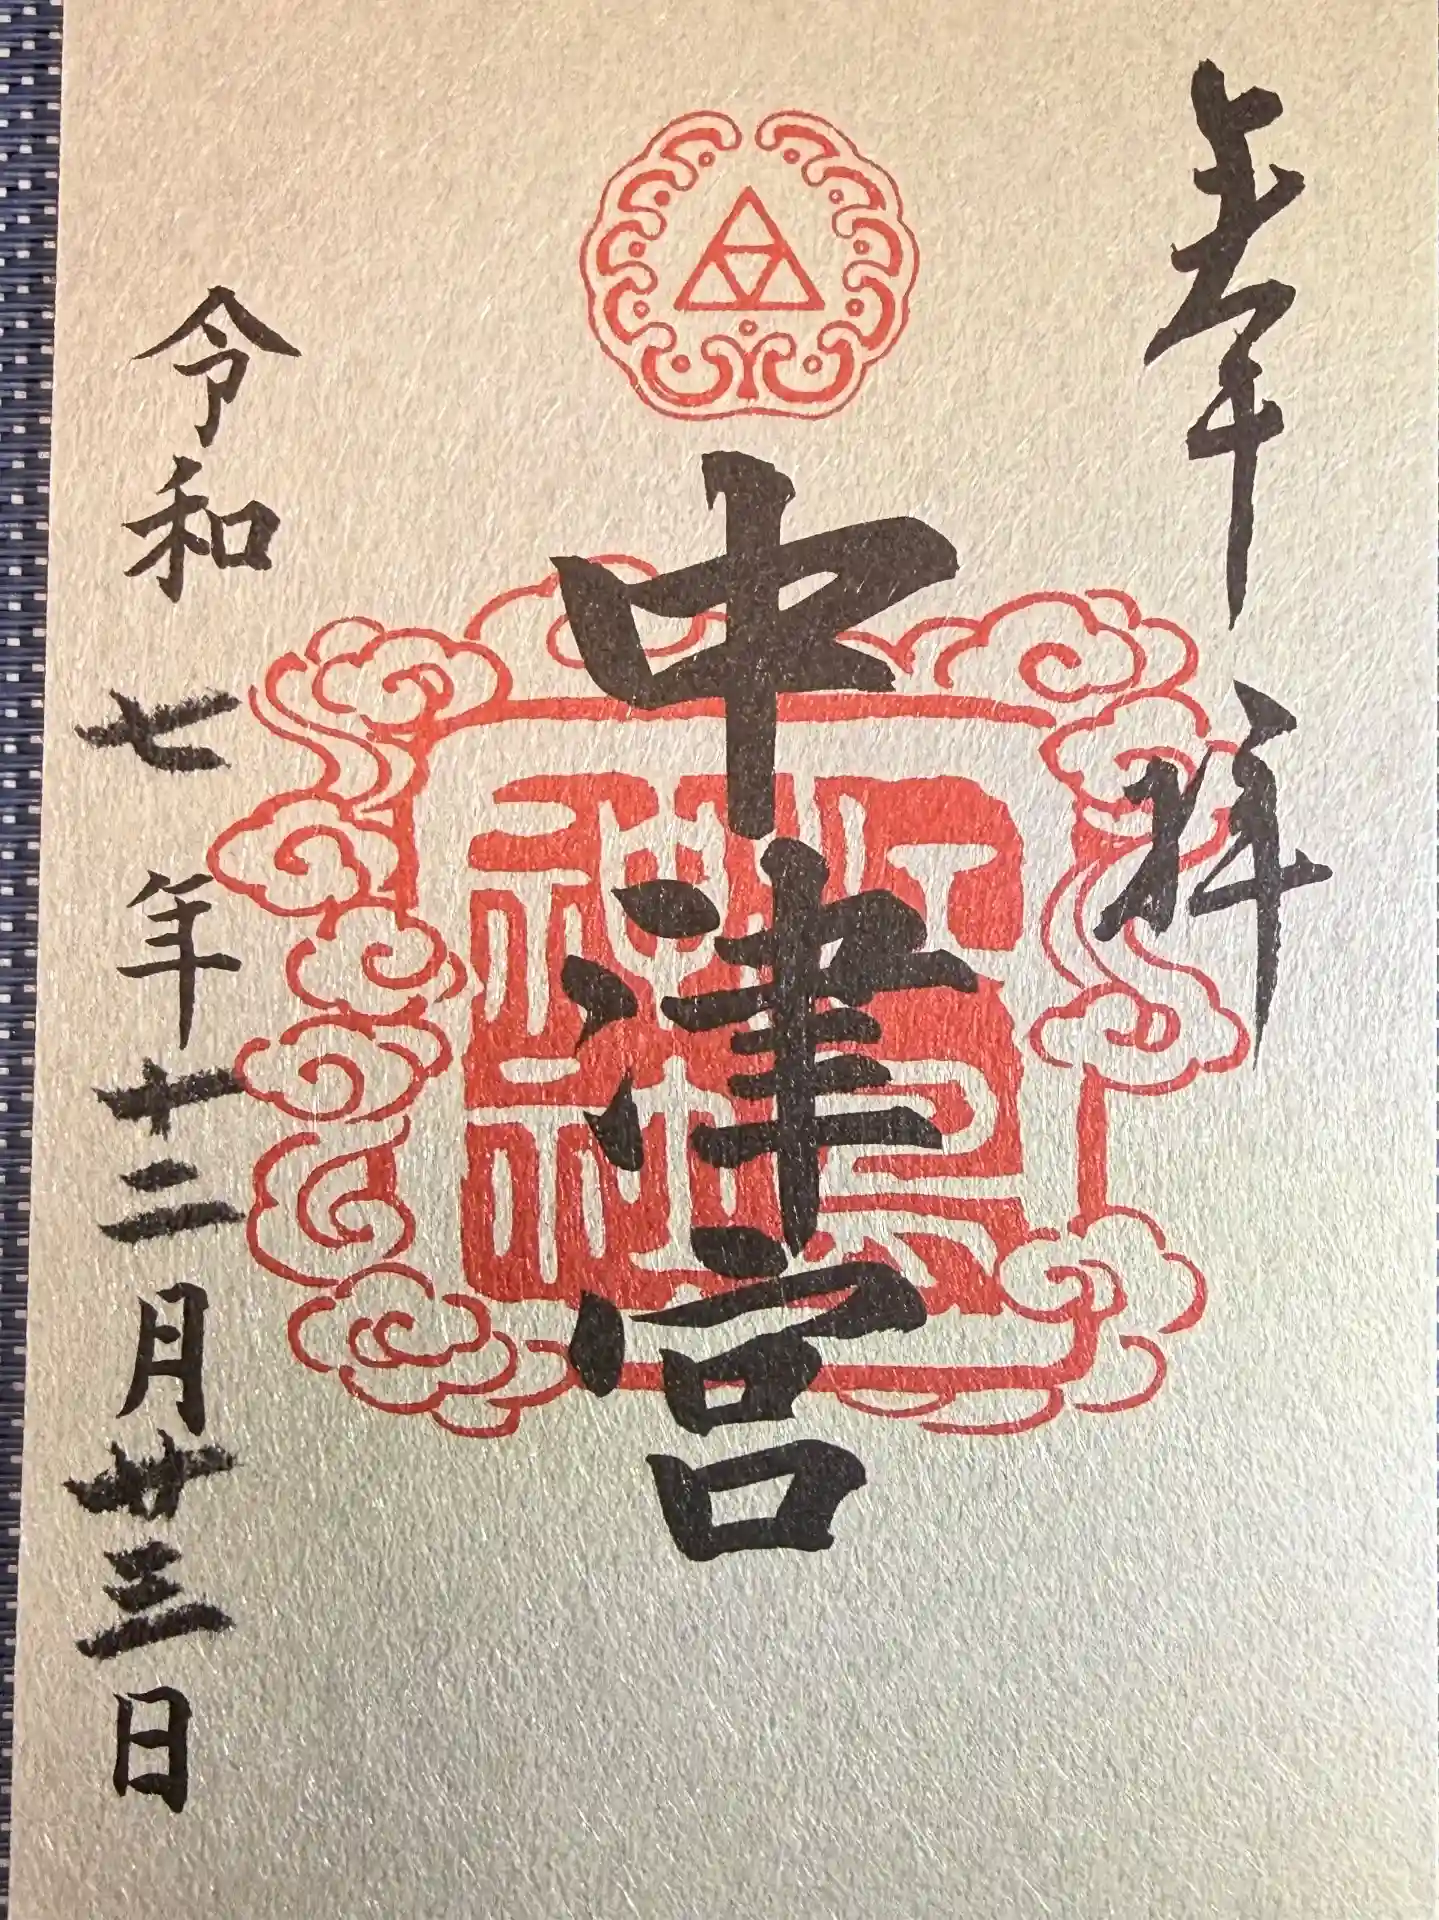 奉拝
中津宮
令和七年十二月廿三日